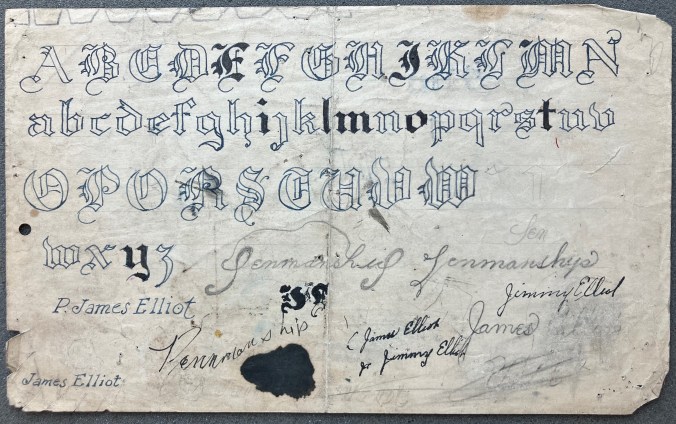 A B C D E F G H I K L M N
a b c d e f g h i j k l m n o p q r s t u v
O P Q R S T U V W
w x y z
Sen
Penmanship Penmanship
Jimmy Elliot
P. James Elliot
Penmanship
James
( James Elliot
Jr Jimmy Elliot
James Elliot